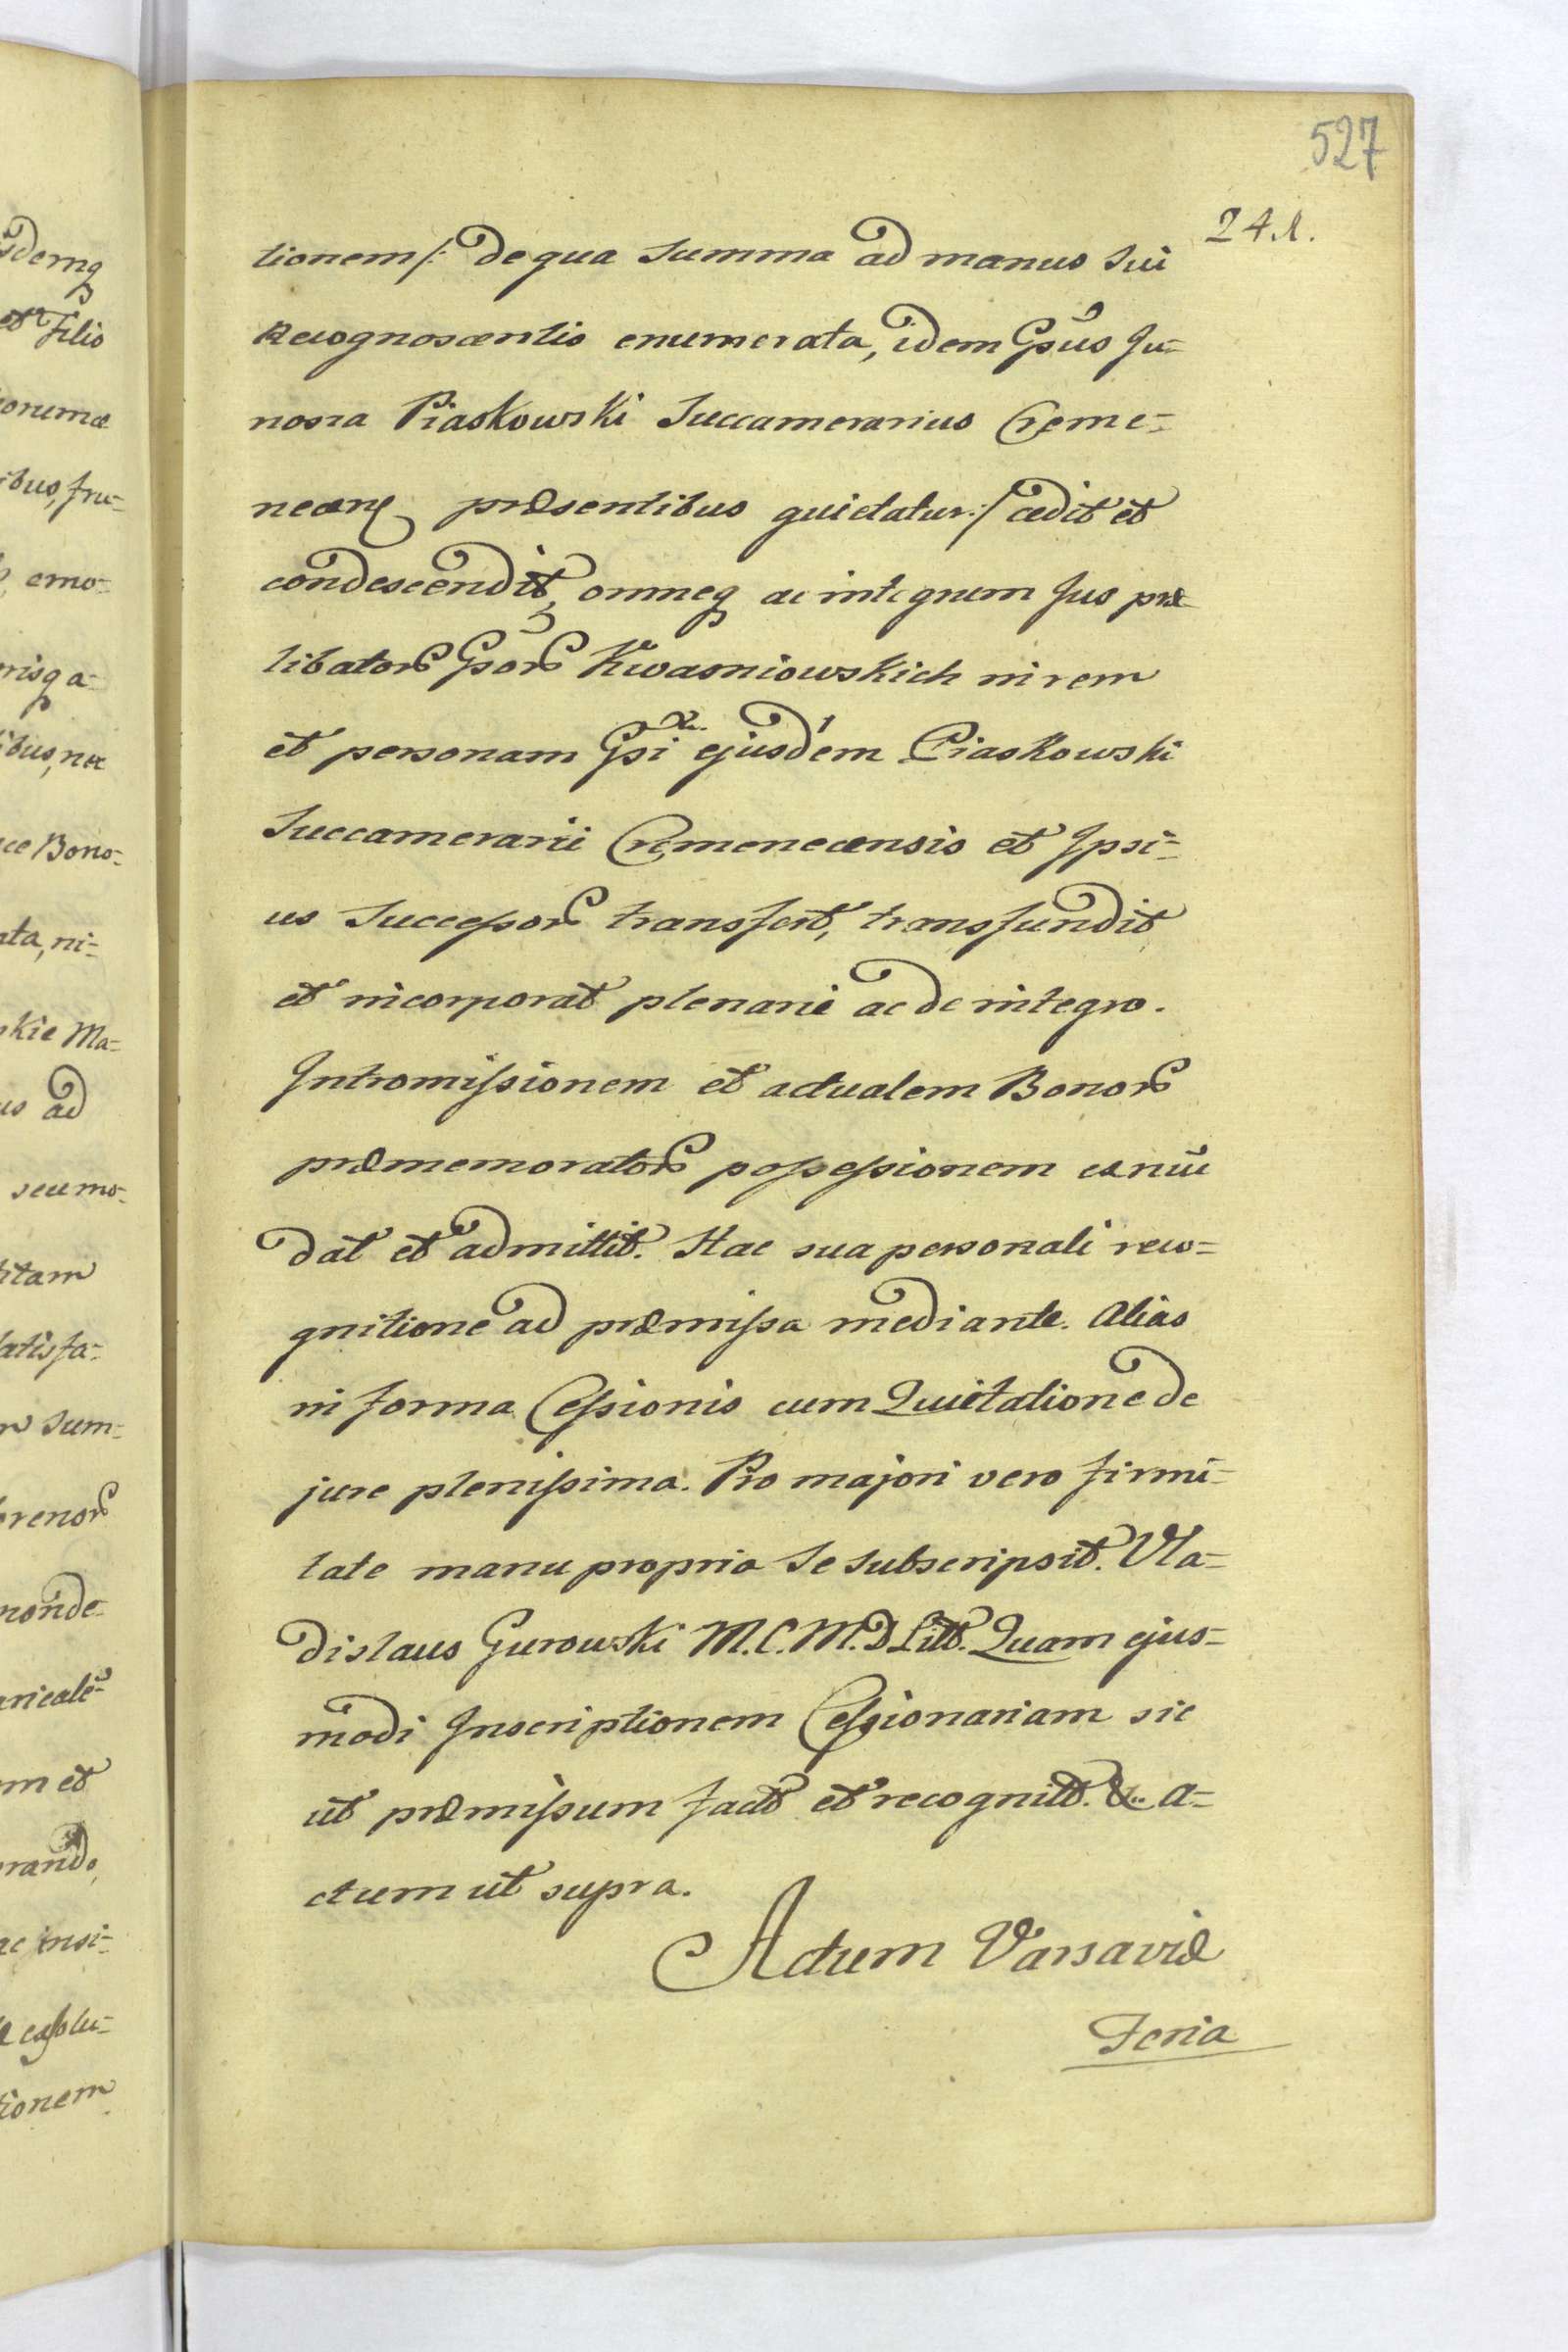 527
24.1.
tionem /: de qua summa ad manus sui
Recognoscentis enumerata, idem Gsus Ju=
nosza Piaskowski Succamerarius Creme=
necens præsentibus quietatur :/ cedit et
condescendit, omneq ac integrum Jus præ=
libator Gsor Kwasniowskich in rem
et personam Gsi ejusdem Piaskowski
Succamerarii Cremenecensis et Ipsi=
us Successor transfert, transfundit
et incorporat plenarie ac de integro.
Intromissionem et actualem Bonor
præmemorator possessionem ex nūc
dat et admittit. Hac sua personali reco=
gnitione ad præmissa mediante. Alias
in forma Cessionis cum Quietatione de
jure plenissima. Pro majori vero firmi=
tate manu propria se subscripsit. Vla=
dislaus Gurowski M.C.M.D Litt. Quam ejus=
modi Inscriptionem Cessionariam sic
ut præmissum fact et recognitt. &.. A=
ctum ut supra.
Actum Varsaviæ
Feria
idemq
et Filio
ibus, fru=
emo=
risq a=
ibus, nec
Bono=
ata, ni=
skie Ma=
us ad
seu mo=
atisfa=
Sum=
m et
rando,
ac insi=
tionem